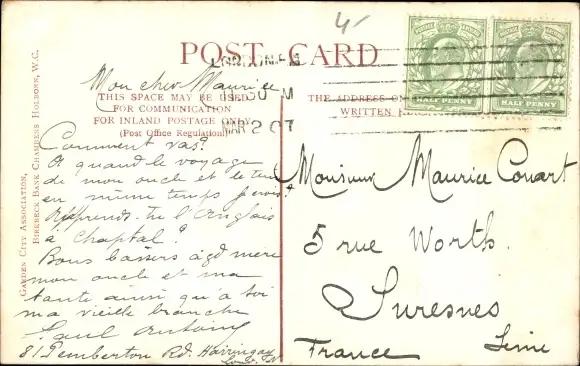 4/-
POST CARD
LONDON
MAR 2 07
HALF PENNY
HALF PENNY
THIS SPACE MAY BE USED
FOR COMMUNICATION
FOR INLAND POSTAGE ONLY
(Post Office Regulation).
THE ADDRESS ON
WRITTEN
GARDEN CITY ASSOCIATION,
BIRKBECK BANK CHAMBERS HOLBORN, W.C.
Mon cher Maurice
Comment vas?
A quand le voyage
de mon oncle et le tien
en même temps
Apprends-tu l'Anglais
à Chaptal?
Bons baisers à gd mere
mon oncle et ma
tante ainsi qu'à toi
ma vieille branche
Paul Antony
81 Pemberton Rd. Harringay
Lond. N
Monsieur Maurice Couart
5 rue Worth.
Suresnes
Seine
France